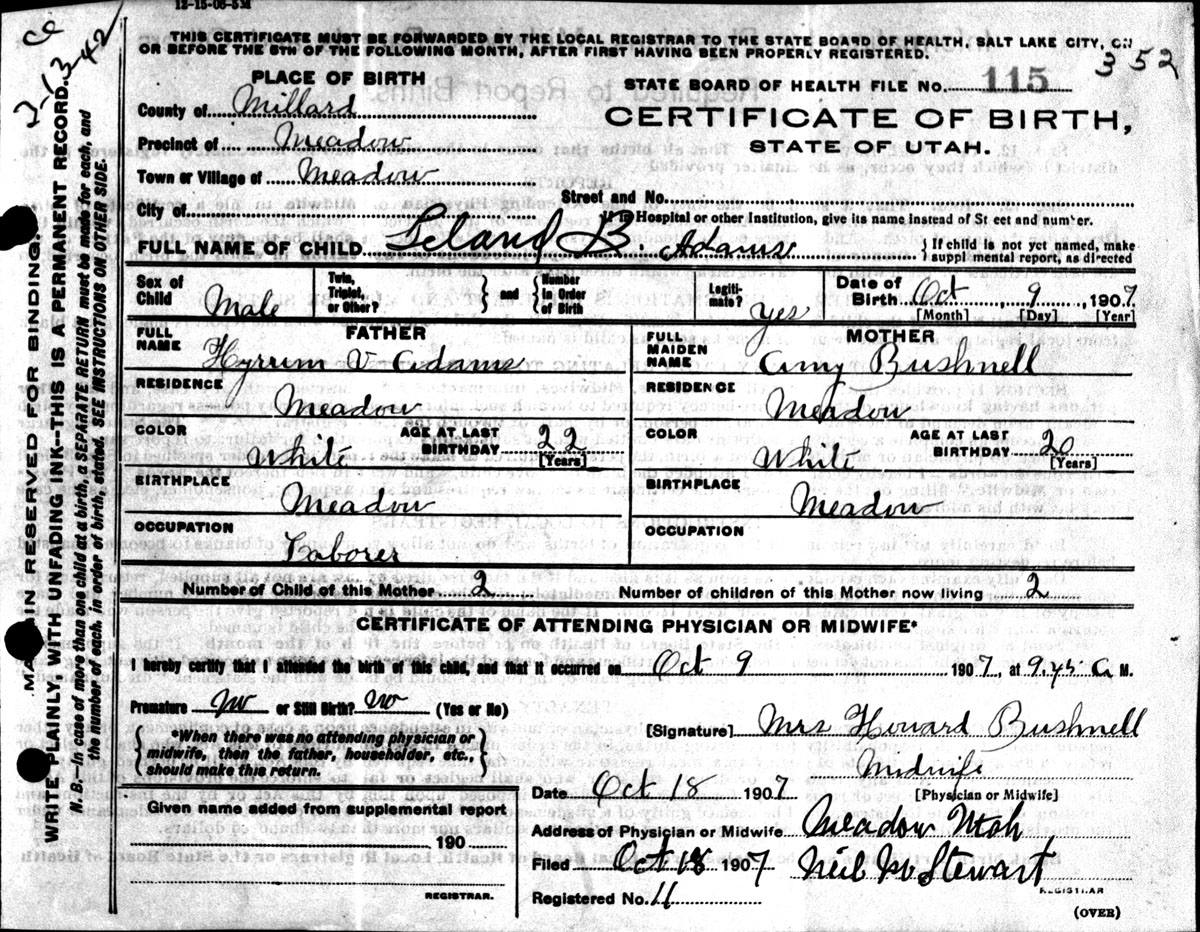 12-15-06-5M
THIS CERTIFICATE MUST BE FORWARDED BY THE LOCAL REGISTRAR TO THE STATE BOARD OF HEALTH, SALT LAKE CITY, ON
OR BEFORE THE 5TH OF THE FOLLOWING MONTH, AFTER FIRST HAVING BEEN PROPERLY REGISTERED.
352
2-13-42
PLACE OF BIRTH
STATE BOARD OF HEALTH FILE NO. 115
County of Millard
CERTIFICATE OF BIRTH,
Precinct of Meadow
STATE OF UTAH.
Town or Village of Meadow
Street and No.
City of
If in Hospital or other Institution, give its name instead of Street and number.
FULL NAME OF CHILD Leland B Adams
If child is not yet named, make
supplmental report, as directed
Sex of Child Male
Twin, Triplet, or Other?
and
Number in Order of Birth
Legitimate? yes
Date of Birth Oct 9 1907
[Month] [Day] [Year]
FATHER
MOTHER
FULL NAME Hyrum V Adams
FULL MAIDEN NAME Amy Bushnell
RESIDENCE Meadow
RESIDENCE Meadow
COLOR White
AGE AT LAST BIRTHDAY 22
[Years]
COLOR White
AGE AT LAST BIRTHDAY 20
[Years]
BIRTHPLACE Meadow
BIRTHPLACE Meadow
OCCUPATION Laborer
OCCUPATION
Number of Child of this Mother 2
Number of children of this Mother now living 2
CERTIFICATE OF ATTENDING PHYSICIAN OR MIDWIFE*
I hereby certify that I attended the birth of this child, and that it occurred on Oct 9 1907, at 9.45 a M.
Premature no or Still Birth? no (Yes or No)
*When there was no attending physician or
midwife, then the father, householder, etc.,
should make this return.
[Signature] Mrs Howard Bushnell
Midwife
[Physician or Midwife]
Date Oct 18 1907
Given name added from supplemental report
190
REGISTRAR.
Address of Physician or Midwife Meadow Utah
Filed Oct 18 1907 Neil M Stewart
REGISTRAR
Registered No. 11
(OVER)
IN RESERVED FOR BINDING.
WRITE PLAINLY, WITH UNFADING INK--THIS IS A PERMANENT RECORD.
N.B.--In case of more than one child at a birth, a SEPARATE RETURN must be made for each, and
the number of each, in order of birth, stated. SEE INSTRUCTIONS ON OTHER SIDE.